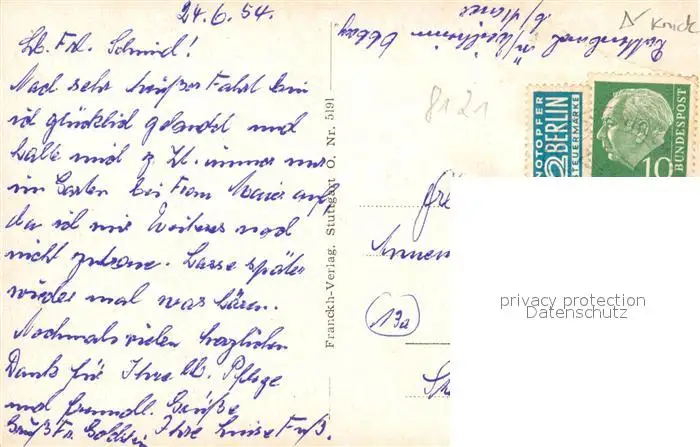 24.6.54.
Lb. Frl. Schmid!
Nach sehr heißer Fahrt bin
ich glücklich gelandet und
halte mich z. Zt. immer nur
im Garten bei Frau Maier auf
da ich mir Weiteres noch
nicht zutraue. Lasse später
wieder mal was hören.
Nochmals vielen herzlichen
Dank für Ihre lb. Pflege
und freundl. Grüße
Gruß Fr. Ihre Luise Fuß.
Franckh-Verlag, Stuttgart O. Nr. 5191
Weilheim Obby
b/Maier
Knick
8121
NOTOPFER
2 BERLIN
STEUERMARKE
10
BUNDESPOST
Frl
13a
privacy protection
Datenschutz